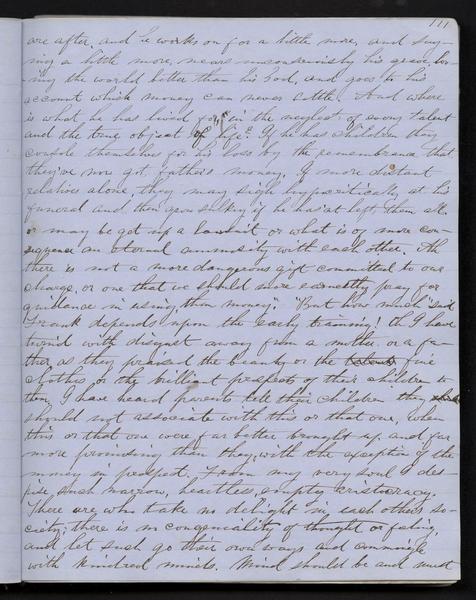 111
are after, and he works on for a little more, and say-
ing a little more, nears unconsciously his grave, lov-
ing the world better than his God, and goes to his
account which money can never settle. And where
is what he has lived for in the neglect of every talent
and the true object of life? If he has children they
console themselves for his loss by the remembrance that
they've now got father's money. If more distant
relatives alone they may sigh hypocritically at his
funeral and then grow sulky if he has'nt left them all.
or may be get up a lawsuit or what is of more con-
sequence an eternal animosity with each other. Ah
there is not a more dangerous gift committed to our
charge, or one that we should more earnestly pray for
guidance in using, than money". "But how much" said
Frank depends upon the early training! Oh I have
turn'd with disgust away from a mother, or a fa-
ther as they praised the beauty or the fine
clothes or the brilliant prospects of their children to
them, I have heard parents tell their children they
should not associate with this or that one, when
this or that one were far better brought up, and far
more promising than they, with the exception of the
money in prospect. From my very soul I des-
pise such narrow, heartless, empty aristocracy.
There are who take no delight in each others so-
ciety; there is no congeniality of thought or feeling,
and let such go their own ways and commingle
with kindred minds. Mind should be and must